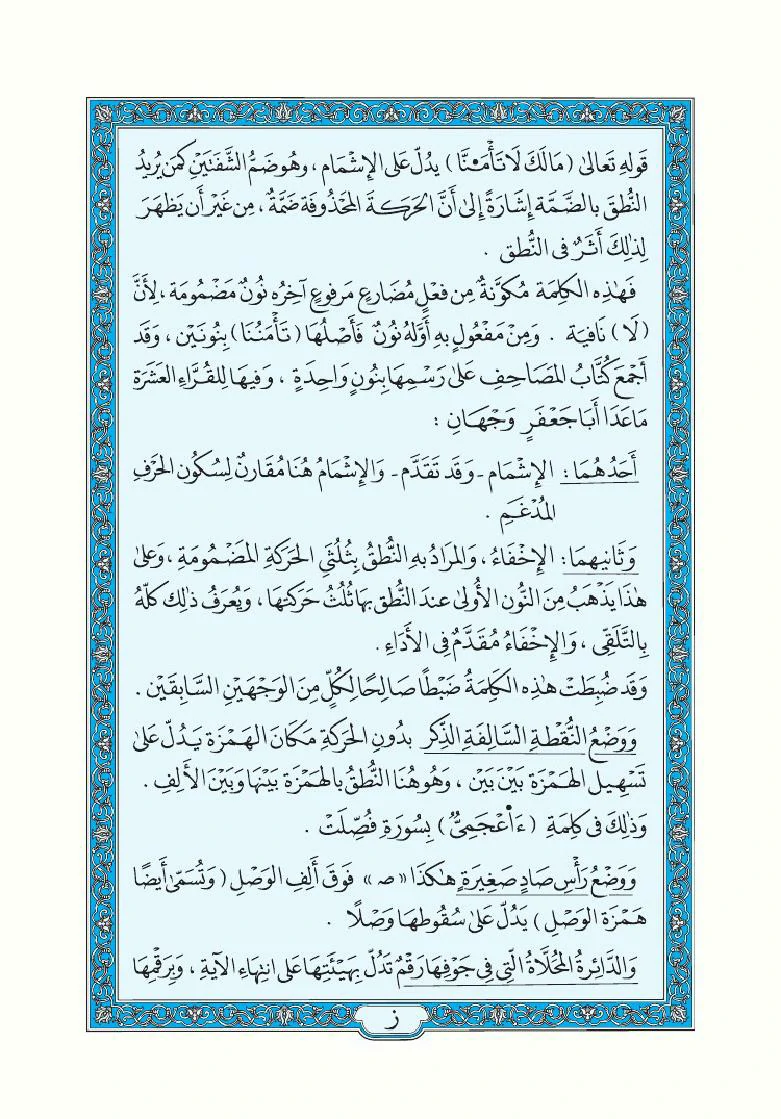 قَولِهِ تَعَالىٰ (مَالَكَ لَا تَأْمَ۬نَّا) يدُلّ عَلى الإِشْمَام ، وهُو ضَمُّ الشَّفَتَيْنِ كمَن يُريدُ
النُّطقَ بالضَّمَّة إِشَارَةً إِلىٰ أَنَّ الحَرَكَةَ المَحْذُوفَةَ ضَمَّةٌ ، مِن غَيْرِ أَن يَظهَرَ
لِذٰلِكَ أَثَرٌ في النُّطق .
فَهٰذِه الكَلِمَة مُكوَّنَةٌ مِن فِعْلٍ مُضَارِعٍ مَرفوعٍ آخِرُه نُونٌ مَضْمُومَة ، لِأَنَّ
(لَا) نَافِيَة . وَمِنْ مَفْعُولٍ بِهِ أَوَّلهُ نُونٌ فَأَصْلُهَا (تَأْمَنُنَا) بِنُونَيْن ، وَقَد
أَجْمَعَ كُتَّابُ المَصَاحِفِ عَلىٰ رَسْمِهَا بِنُونٍ وَاحِدَةٍ ، وَفِيهَا لِلقُرَّاءِ العَشَرَة
مَا عَدَا أَبَا جَعْفَرٍ وَجْهَانِ :
أَحَدُهُمَا : الإِشْمَام - وَقَد تَقَدَّم - وَالإِشْمَامُ هُنَا مُقَارِنٌ لِسُكُونِ الحَرْفِ
المُدْغَمِ .
وَثَانِيهِمَا : الإِخْفَاءُ ، وَالمرَادُ بِهِ النُّطْقُ بِثُلُثَيِ الحَرَكَةِ المَضْمُومَةِ ، وَعَلىٰ
هٰذَا يَذْهَبُ مِنَ النُّونِ الأُولىٰ عِندَ النُّطقِ بِهَا ثُلُثُ حَرَكَتِهَا ، وَيُعْرَفُ ذٰلِكَ كلّهُ
بِالتَّلَقِّي ، وَالإِخْفَاءُ مُقَدَّمٌ فِي الأَدَاءِ .
وَقَد ضُبِطَتْ هٰذِهِ الكَلِمَةُ ضَبْطًا صَالِحًا لِكُلٍّ مِنَ الوَجْهَيْنِ السَّابِقَيْنِ .
وَوَضْعُ النُّقْطَةِ السَّالِفَةِ الذِّكْرِ بِدُونِ الحَرَكَةِ مَكَانَ الهَمْزَة يَدُلّ عَلىٰ
تَسْهِيلِ الهَمْزَة بَيْنَ بَيْن ، وَهُو هُنَا النُّطْقُ بِالهَمْزَة بَيْنَهَا وَبَيْنَ الأَلِفِ .
وَذٰلِكَ في كلِمَةِ (ءَا۬عْجَمِيٌّ) بِسُورَةِ فُصِّلَتْ .
وَوَضْعُ رَأْسِ صَادٍ صَغِيرَةٍ هٰكَذَا «صـ» فَوقَ أَلِفِ الوَصْل (وَتُسَمَّىٰ أَيضًا
هَمْزَةَ الوَصْلِ) يَدُلّ عَلىٰ سُقُوطهَا وَصْلًا .
وَالدَّائِرَةُ المُحَلَّاةُ الَّتِي فِي جَوْفِهَا رَقْمٌ تَدُلّ بِهَيْئَتِهَا عَلى انتِهَاءِ الآيَةِ ، وَبِرَقْمِهَا
ز